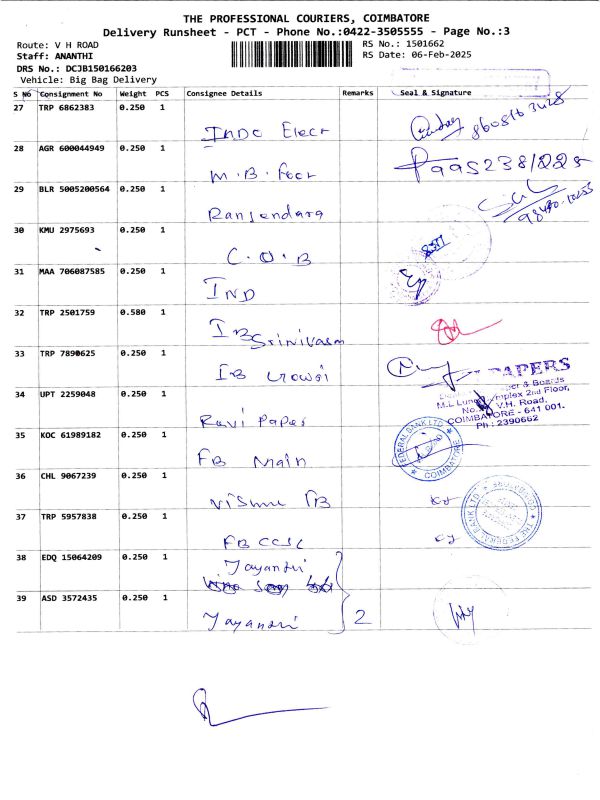 THE PROFESSIONAL COURIERS, COIMBATORE
Delivery Runsheet - PCT - Phone No.:0422-3505555 - Page No.:3
Route: V H ROAD
RS No.: 1501662
Staff: ANANTHI
RS Date: 06-Feb-2025
DRS No.: DCJB150166203
Vehicle: Big Bag Delivery
S No Consignment No Weight PCS Consignee Details Remarks Seal & Signature
27 TRP 6862383 0.250 1
Indo Elect
28 AGR 600044949 0.250 1
M.B. Foor
29 BLR 5005200564 0.250 1
30 KMU 2975693 0.250 1
C.O.B
31 MAA 706087585 0.250 1
IND
32 TRP 2501759 0.580 1
IB Srinivasan
33 TRP 7890625 0.250 1
IB Gowri
PAPERS
34 UPT 2259048 0.250 1
M.L Complex 2nd Floor,
V.H. Road,
COIMBATORE - 641 001.
Ph : 2390662
Ravi Paper
35 KOC 61989182 0.250 1
FEDERAL BANK LTD
COIMBATORE
FB Main
36 CHL 9067239 0.250 1
Vishnu FB
THE FEDERAL BANK LTD
37 TRP 5957838 0.250 1
FB CCSC
38 EDQ 15064209 0.250 1
Jayanthi
39 ASD 3572435 0.250 1
Jayanthi 2